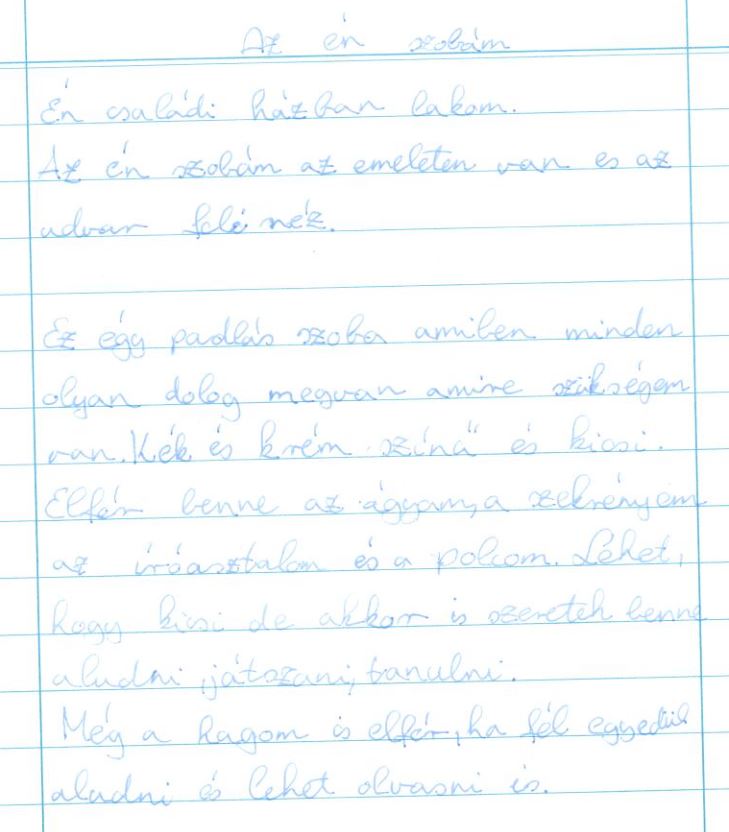 Az én szobám
Én családi házban lakom.
Az én szobám az emeleten van es az
udvar felé néz.
Ez egy padlás szoba amiben minden
olyan dolog megvan amire szükségem
van. Kék és krém színű és kicsi.
Elfér benne az ágyam, a szekrényem
az íróasztalom és a polcom. Lehet,
hogy kicsi de akkor is szeretek benne
aludni, játszani, tanulni.
Még a hugom is elfér, ha fél egyedül
aludni és lehet olvasni is.